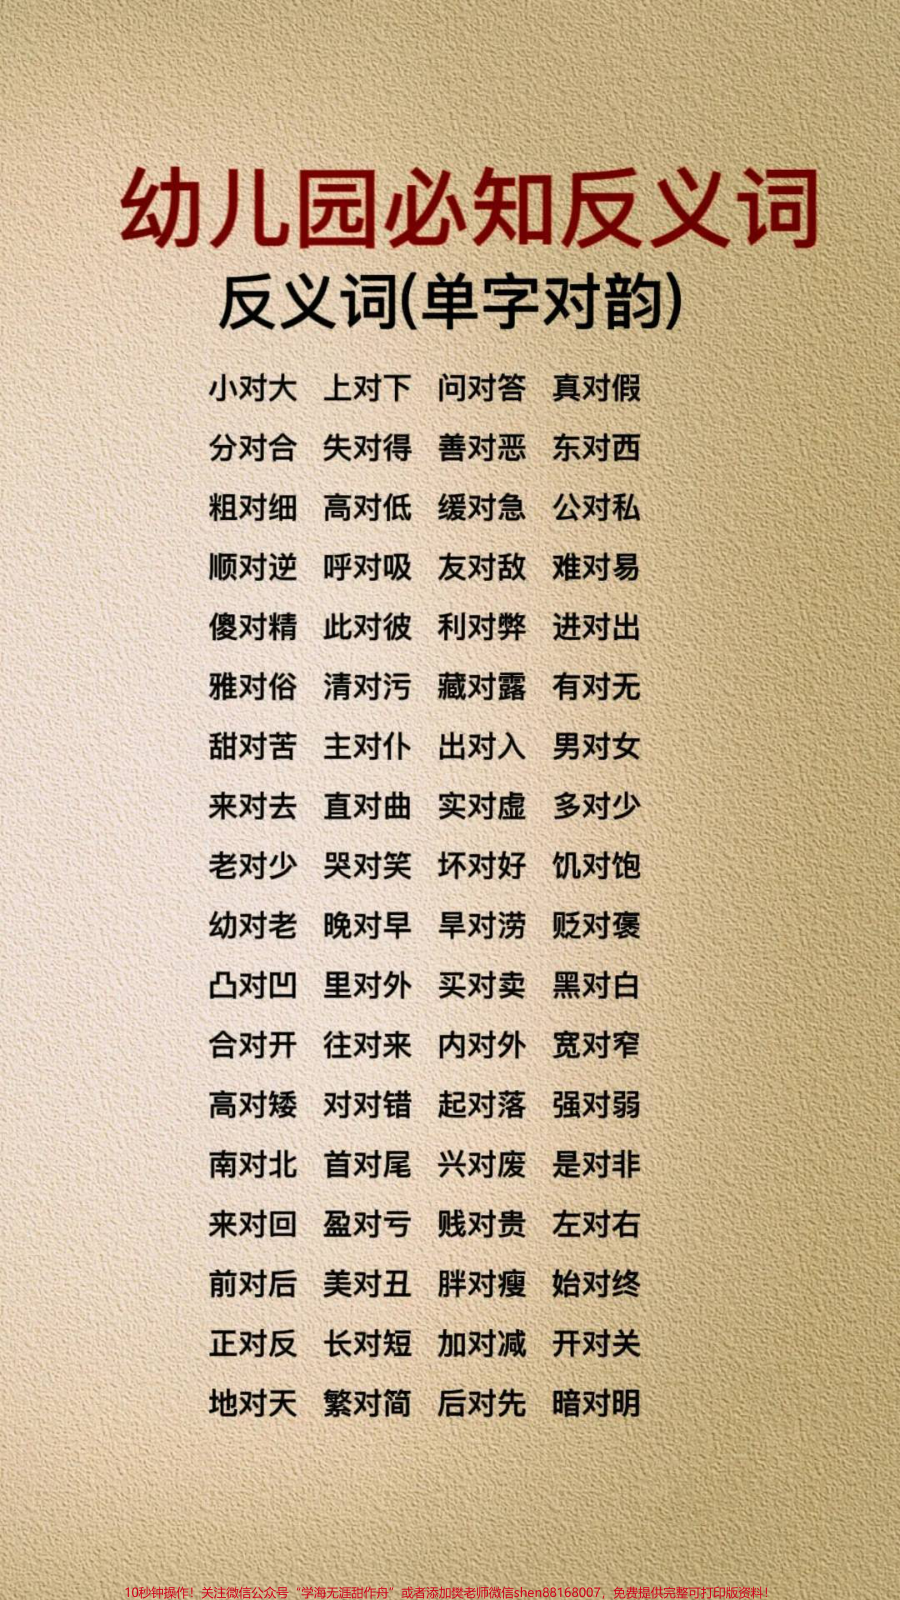 幼儿园必知反义词
反义词(单字对韵)
小对大 上对下 问对答 真对假
分对合 失对得 善对恶 东对西
粗对细 高对低 缓对急 公对私
顺对逆 呼对吸 友对敌 难对易
傻对精 此对彼 利对弊 进对出
雅对俗 清对污 藏对露 有对无
甜对苦 主对仆 出对入 男对女
来对去 直对曲 实对虚 多对少
老对少 哭对笑 坏对好 饥对饱
幼对老 晚对早 旱对涝 贬对褒
凸对凹 里对外 买对卖 黑对白
合对开 往对来 内对外 宽对窄
高对矮 对对错 起对落 强对弱
南对北 首对尾 兴对废 是对非
来对回 盈对亏 贱对贵 左对右
前对后 美对丑 胖对瘦 始对终
正对反 长对短 加对减 开对关
地对天 繁对简 后对先 暗对明
10秒钟操作！关注微信公众号“学海无涯甜作舟”或者添加樊老师微信shen88168007，免费提供完整可打印版资料！